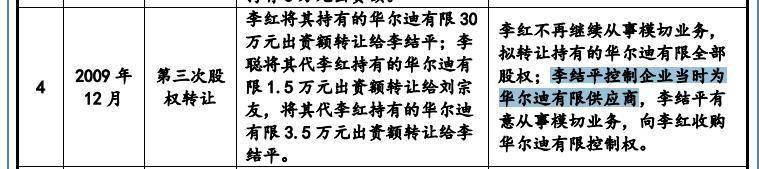 李红将其持有的华尔迪有限 30
万元出资额转让给李结平；李
聪将其代李红持有的华尔迪有
限 1.5 万元出资额转让给刘宗
友，将其代李红持有的华尔迪
有限 3.5 万元出资额转让给李
结平。
4
2009 年
12 月
第三次股
权转让
李红不再继续从事模切业务，
拟转让持有的华尔迪有限全部
股权；李结平控制企业当时为
华尔迪有限供应商，李结平有
意从事模切业务，向李红收购
华尔迪有限控制权。